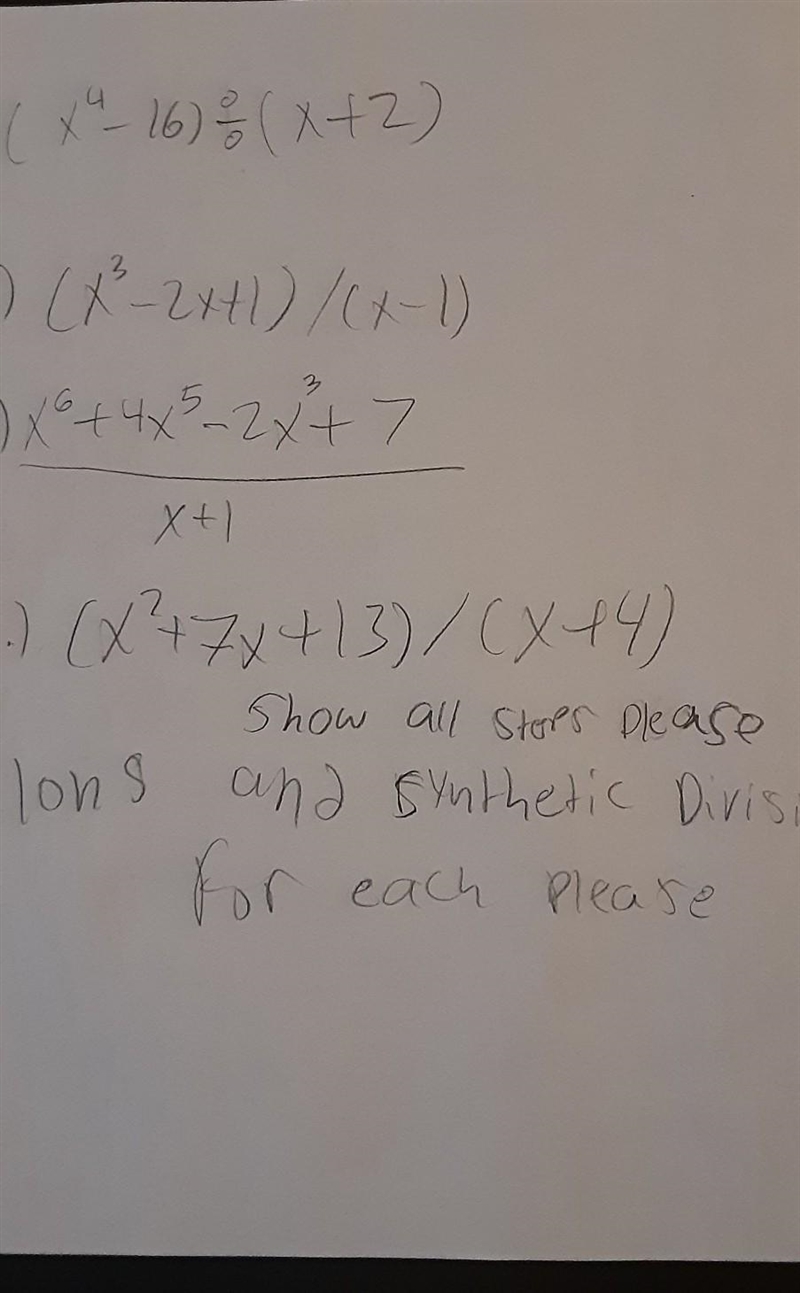 (x⁴-16)÷(x+2)
) (x³-2x+1)/(x-1)
) x⁶+4x⁵-2x³+7
x+1
.) (x²+7x+13)/(x+4)
Show all steps please
long and synthetic Divisi
For each please